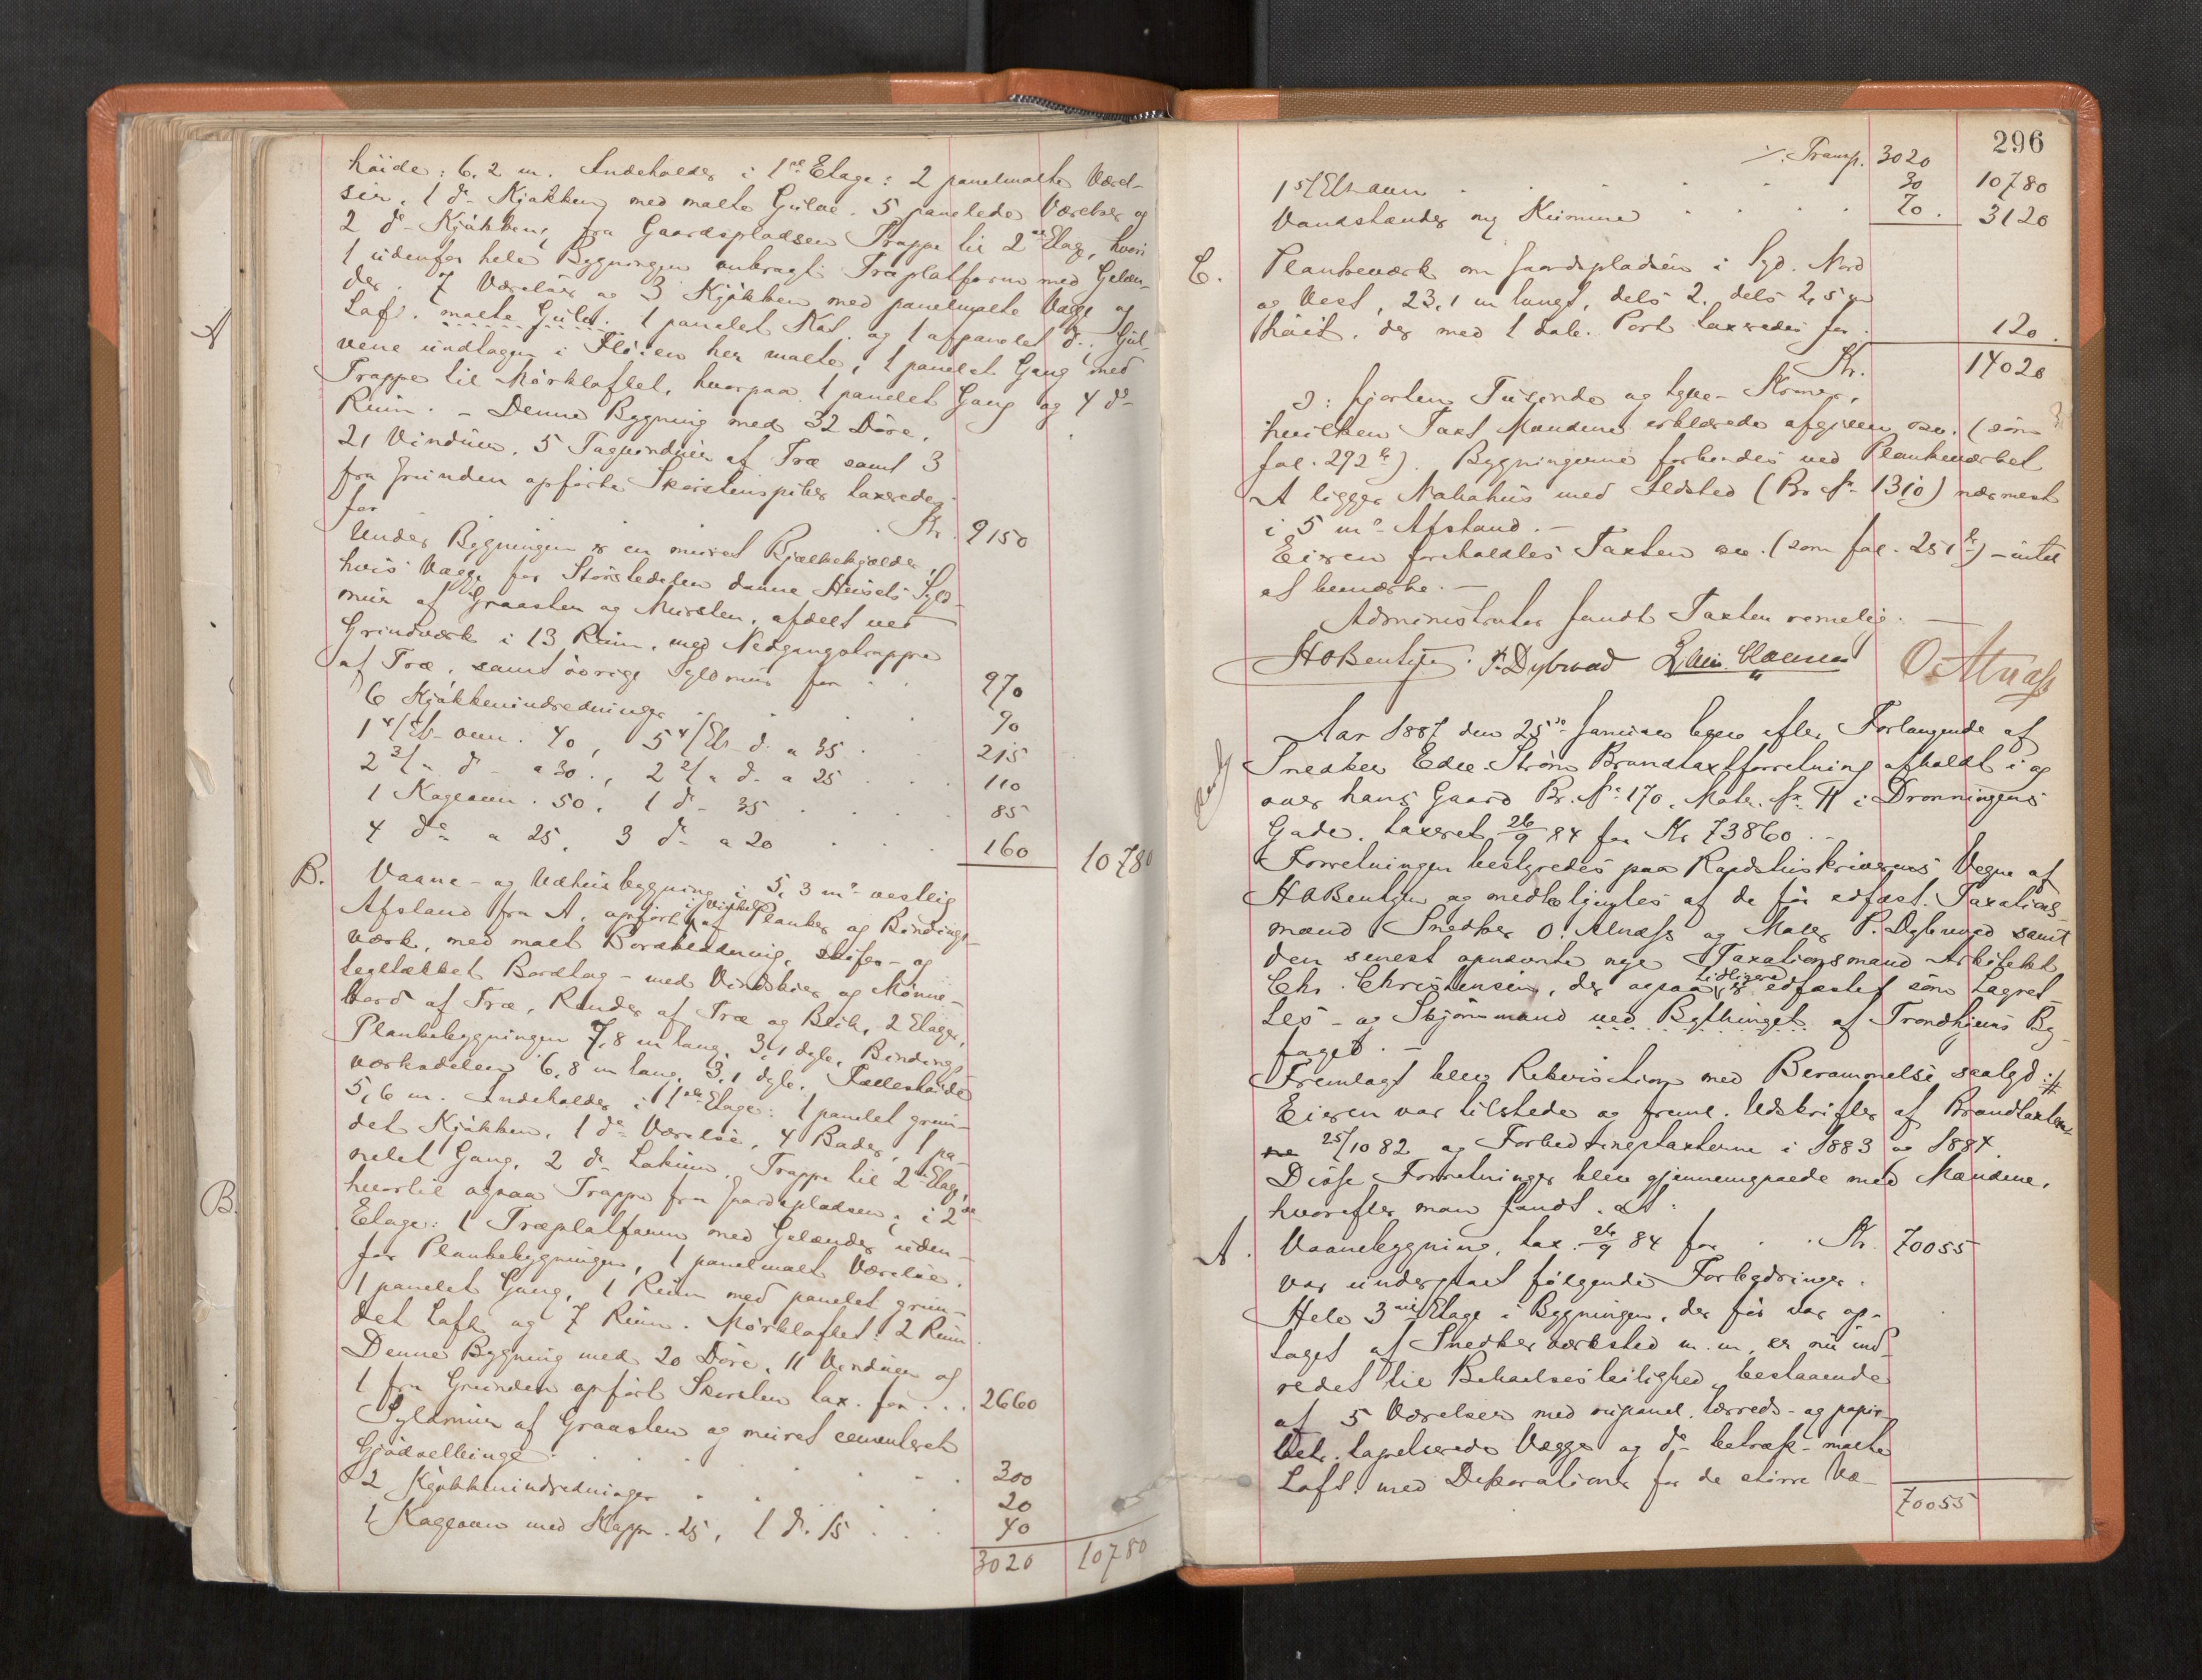 höide: 6,2 m. Indeholder i 1ste Etage: 2 panelmalte Værel-
ser, 1 do Kjøkken med malte Gulve. 5 panelede Værelser og
2 do Kjøkken, fra Gaardspladsen Trappe til 2den Etag., hvori
1 udenfor hele Bygningen anbragt Træplatform med Gelæn-
der. 7 Værelser og 3 Kjøkken med panelmalte Vægge og
Loft. malte Gulve. 1 panelet Kot og 1 afpanelet do. Gul-
vene undtagen i Fløien her malte, 1 panelet Gang med
Trappe til Mørkloftet, hvorpaa 1 panelet Gang og 4 do
Rum. – Denne Bygning med 32 Döre,
21 Vinduer, 5 Tagvinduer af Træ samt 3
fra Grunden opførte Skorstenspiber taxeredes
for . . . Kr. 9150
Under Bygningen er en muret Bjælkekjælder,
hvis Vægge for Störstedelen danne Husets Syld-
mur af Graasten og Mursten, afdelt ved
Grindværk i 13 Rum, med Nedgangstrappe
af Træ, samt øvrige Syldmur for . . 970
6 Kjøkkenindredninger . . . 90
1 4/Et. Ovn. 40, 5 4/Etr. d. a 35 . . 215
2 3/" do a 30., 2 2/" d. a 25 . . . 110
1 Kageovn. 50, 1 do 35 . . . . 85
4 do a 25, 3 do a 20 . . . 160 10780
B. Vaane- og Udhusbygning i 5,3 m. vestlig
Afstand fra A, opført i Vinkel af Planker og Bindings-
værk, med malt Bordklædning, skifer- og
tegltækket Bordtag – med Vindskier og Mønne-
bord af Træ, Render af Træ og Blik, 2 Etager,
Plankebygningen 7,8 m lang, 3,1 dyb, Bindings-
værksdelen 6,8 m lang, 3,1 dyb. Fælleshöide
5,6 m. Indeholder i 1ste Etage: 1 panelet grun-
det Kjøkken, 1 do Værelse, 4 Boder, 1 pa-
nelet Gang, 2 do Lokum, Trappe til 2den Etag.,
hvortil ogsaa Trappe fra Gaardspladsen; i 2den
Etage: 1 Træplatform med Gelænder uden-
for Plankebygningen, 1 panelmalt Værelse,
1 panelet Gang, 1 Rum med panelet grun-
det Loft og 7 Rum. Mørkloftet: 2 Rum.
Denne Bygning med 20 Döre, 11 Vinduer og
1 fra Grunden opført Skorsten tax. for . . . 2660
Syldmur af Graasten og muret cementeret
Gjødselbinge . . . . . 300
2 Kjøkkenindredninger . . . . 20
1 Kageovn med Kappe. 25, 1 d. 15 . . . 40
3020 10780
A
B.
296
./. Transp. 3020 10780
1 5/Et. Ovn . . . . . 30
Vandstænder og Kumme . . . . 70. 3120
C. Plankeværk om Gaardspladsen i Syd, Nord
og Vest, 23,1 m langt, dels 2, dels 2,5 m
höit, der med 1 dob. Port taxeredes for . 120.
Kr. 14020
ɔ: fjorten Tusinde og tyve Kroner,
hvilken Taxt Mændene erklærede afgiven osv. (som
fol. 292 b). Bygningerne forbindes ved Plankeværket
A ligger Naboh​us med Ildsted (Br. No 1310) nærmest
i 5 m. Afstand. –
Eieren foreholdtes Taxten osv. (som fol. 251 b) – intet
at bemærke. –
Administrator fandt Taxten rimelig. –
H O Bentzen. P. Dybwad Chr. Claussen O. Alnæss
Aar 1887 den 25de Januar blev efter Forlangende af
Snedker Edv. Ström Brandtaxtforretning afholdt i og
over hans Gaard Br. No 170, Matr. No 71 i Dronningens
Gade, taxeret 26/9 84 for Kr 73860. –
Forretningen bestyredes paa Raadstuskriverens Vegne af
H O Bentzen og medbetjentes af de før edfæst. Taxations-
mænd Snedker O. Alnæss og Maler P. Dybwad samt
den senest opnævnte nye Taxationsmand Arkitekt
Chr. Christensen, der ogsaa tidligere er edfæstet som Lagret-
tes- og Skjønsmand ved Bythinget af Trondhjems By-
foged. –
Fremlagt blev Rekvisition med Berammelse saalyd: #
Eieren var tilstede og freml. Udskrifter af Brandtaxter-
ne 25/10 82 og Forbedringstaxterne i 1883 og 1884.
Disse Forretninger blev gjennemgaaede med Mændene,
hvorefter man fandt, at:
A. Vaanebygning, tax. 26/9 84 for . . Kr. 70055
var undergaaet følgende Forbedringer.
Hele 3die Etage i Bygningen, der før var op-
taget af Snedkerværksted m. m., er nu ind-
redet til Beboelsesleilighed, bestaaende
af 5 Værelser med rupanel, lærreds- og papir-
betr. tapetserede Vægge og do betræk-malte
Loft med Dekorationer for de større Væ-
70055